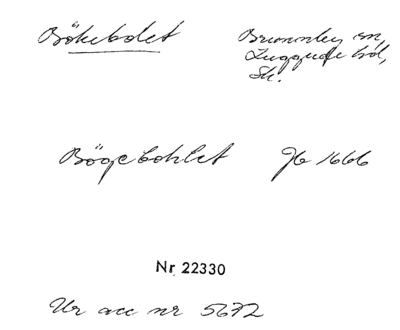 Bökebolet Brunnby sn,
Luggude hd,
Sk.
Bögebohlet Jb 1666
Nr 22330
Ur acc nr 5672